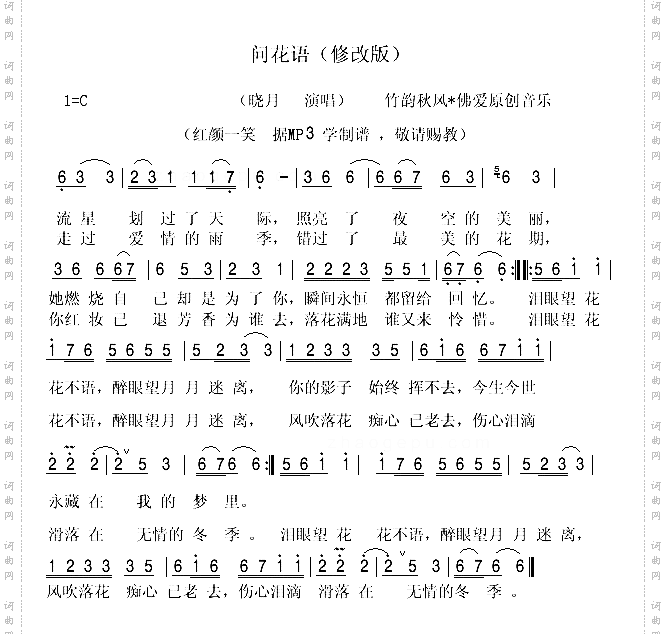 问花语（修改版）
1=C （晓月 演唱） 竹韵秋风*佛爱原创音乐
（红颜一笑 据MP3 学制谱，敬请赐教）
6 3 3 | 2 3 1 1 1 7 | 6 - | 3 6 6 | 6 6 7 6 3 | 5 6 3 |
流 星 划 过 了 天 际，照亮 了 夜 空 的 美 丽，
走 过 爱 情 的 雨 季，错过 了 最 美 的 花 期，
3 6 6 6 7 | 6 5 3 | 2 3 1 | 2 2 2 3 5 5 1 | 6 7 6 6 :‖: 5 6 1 1 |
她燃 烧 自 己 却 是 为 了 你，瞬间永恒 都留给 回 忆。 泪眼望 花
你红 妆 已 退 芳 香 为 谁 去，落花满地 谁又来 怜 惜。 泪眼望花
1 7 6 5 6 5 5 | 5 2 3 3 | 1 2 3 3 3 5 | 6 1 6 6 7 1 1 |
花不语，醉眼望月 月 迷 离， 你的影子 始终 挥不去，今生今世
花不语，醉眼望月 月 迷 离， 风吹落花 痴心 已老去，伤心泪滴
2 2 2 | 2 5 3 | 6 7 6 6 :‖ 5 6 1 1 | 1 7 6 5 6 5 5 | 5 2 3 3 |
永藏 在 我 的 梦 里。
滑落 在 无情的 冬 季 。 泪眼望 花 花不语，醉眼望月 月 迷 离，
1 2 3 3 3 5 | 6 1 6 6 7 1 1 | 2 2 2 | 2 5 3 | 6 7 6 6 ‖
风吹落花 痴心 已老 去，伤心泪滴 滑落 在 无情的冬 季 。
词曲网